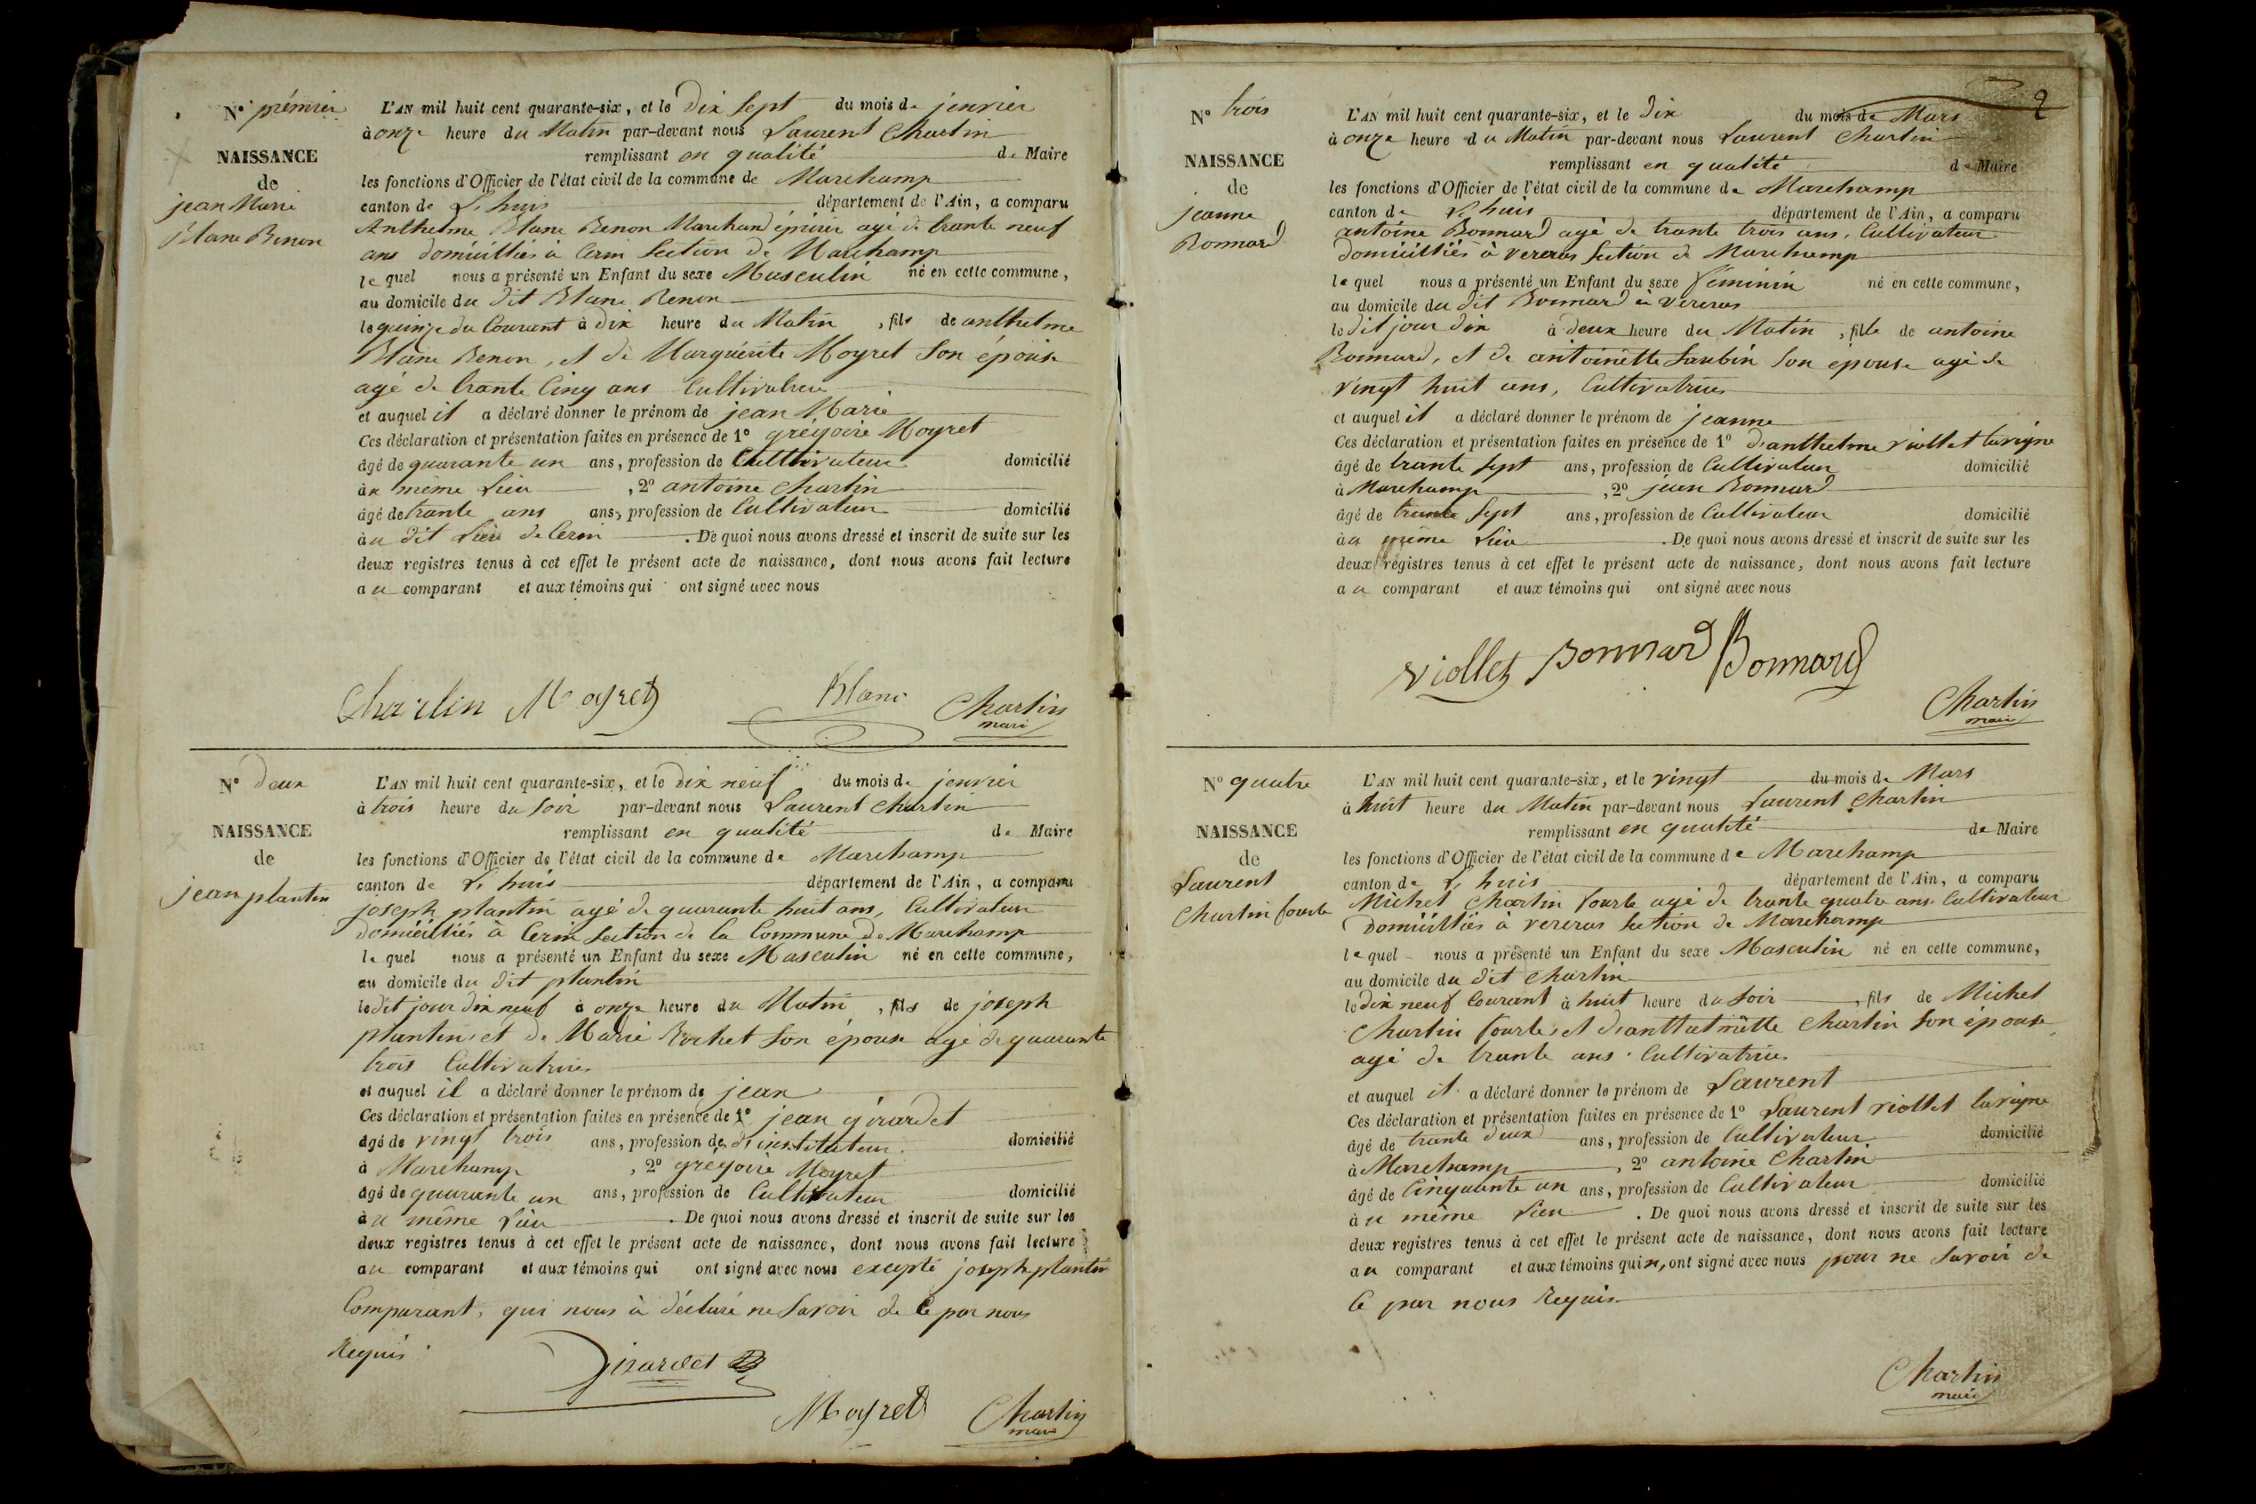 N° prémier
NAISSANCE
de
jean Marie
Blanc Benon
L'AN mil huit cent quarante-six, et le dix sept du mois de jenvier
à onze heure du Matin par-devant nous Laurent Charlin
remplissant en qualité de Maire
les fonctions d'Officier de l'état civil de la commune de Marchamp
canton de L'huis département de l'Ain, a comparu
Anthelme Blanc Benon Marchand épicier agé de trante neuf
ans domicilliés à Cerin Section de Marchamp
le quel nous a présenté un Enfant du sexe Masculin né en cette commune,
au domicile du dit Blanc Benon
le quinze du Courant à dix heure du Matin, fils de anthelme
Blanc Benon, et de Marguérite Moyret Son épouse
agé de trante Cinq ans Cultivatrice
et auquel il a déclaré donner le prénom de jean Marie
Ces déclaration et présentation faites en présence de 1° grégoire Moyret
âgé de quarante un ans, profession de Cultivateur domicilié
au même Lieu, 2° antoine Charlin
âgé de trante ans ans, profession de Cultivateur domicilié
au dit Lieu de Cerin. De quoi nous avons dressé et inscrit de suite sur les
deux registres tenus à cet effet le présent acte de naissance, dont nous avons fait lecture
au comparant et aux témoins qui ont signé avec nous
Charlin Moyret Blanc Charlin
maire
N° deux
NAISSANCE
de
jean plantin
L'AN mil huit cent quarante-six, et le dix neuf du mois de jenvier
à trois heure du soir par-devant nous Laurent Charlin
remplissant en qualité de Maire
les fonctions d'Officier de l'état civil de la commune de Marchamp
canton de L'huis département de l'Ain, a comparu
joseph plantin agé de quarante huit ans, Cultivateur
domicilliés à Cerin Section de la Commune de Marchamp
le quel nous a présenté un Enfant du sexe Masculin né en cette commune,
au domicile du dit plantin
le dit jour dix neuf à onze heure du Matin, fils de joseph
plantin, et de Marie Rochet Son épouse agé de quarante
trois Cultivatrice
et auquel il a déclaré donner le prénom de jean
Ces déclaration et présentation faites en présence de 1° jean girardet
âgé de vingt trois ans, profession de d'instituteur domicilié
à Marchamp, 2° grégoire Moyret
âgé de quarante un ans, profession de Cultivateur domicilié
au même Lieu. De quoi nous avons dressé et inscrit de suite sur les
deux registres tenus à cet effet le présent acte de naissance, dont nous avons fait lecture
au comparant et aux témoins qui ont signé avec nous excepté joseph plantin
Comparant, qui nous à déclaré ne Savoir de Ce par nous
Requis
Girardet
Moyret Charlin
maire
2
N° trois
NAISSANCE
de
jeanne
Bonnard
L'AN mil huit cent quarante-six, et le dix du mois de Mars
à onze heure du Matin par-devant nous Laurent Charlin
remplissant en qualité de Maire
les fonctions d'Officier de l'état civil de la commune de Marchamp
canton de L'huis département de l'Ain, a comparu
antoine Bonnard agé de trante trois ans, Cultivateur
domicilliés à vereras Section de Marchamp
le quel nous a présenté un Enfant du sexe féminin né en cette commune,
au domicile du dit Bonnard à vereras
le dit jour dix à deux heure du Matin, fille de antoine
Bonnard, et de antoinette Saubin Son epouse agé de
vingt huit ans, Cultivatrice
et auquel il a déclaré donner le prénom de jeanne
Ces déclaration et présentation faites en présence de 1° d'anthelme viollet lavigne
âgé de trante sept ans, profession de Cultivateur domicilié
à Marchamp, 2° jean Bonnard
âgé de trante sept ans, profession de Cultivateur domicilié
au même Lieu. De quoi nous avons dressé et inscrit de suite sur les
deux registres tenus à cet effet le présent acte de naissance, dont nous avons fait lecture
au comparant et aux témoins qui ont signé avec nous
viollet Bonnard Bonnard
Charlin
maire
N° quatre
NAISSANCE
de
Laurent
Charlin fourle
L'AN mil huit cent quarante-six, et le vingt du mois de Mars
à huit heure du Matin par-devant nous Laurent Charlin
remplissant en qualité de Maire
les fonctions d'Officier de l'état civil de la commune de Marchamp
canton de L'huis département de l'Ain, a comparu
Michel Charlin fourle agé de trante quatre ans Cultivateur
Domicilliés à vereras section de Marchamp
le quel nous a présenté un Enfant du sexe Masculin né en cette commune,
au domicile du dit Charlin
le dix neuf Courant à huit heure du Soir, fils de Michel
Charlin fourle, et d'anthelmette Charlin Son épouse,
agé de trante ans. Cultivatrice
et auquel il a déclaré donner le prénom de Laurent
Ces déclaration et présentation faites en présence de 1° Laurent viollet lavigne
âgé de trante deux ans, profession de Cultivateur domicilié
à Marchamp, 2° antoine Charlin
âgé de Cinquante un ans, profession de Cultivateur domicilié
au même Lieu. De quoi nous avons dressé et inscrit de suite sur les
deux registres tenus à cet effet le présent acte de naissance, dont nous avons fait lecture
au comparant et aux témoins qui n'ont signé avec nous pour ne Savoir de
Ce par nous Requis
Charlin
maire